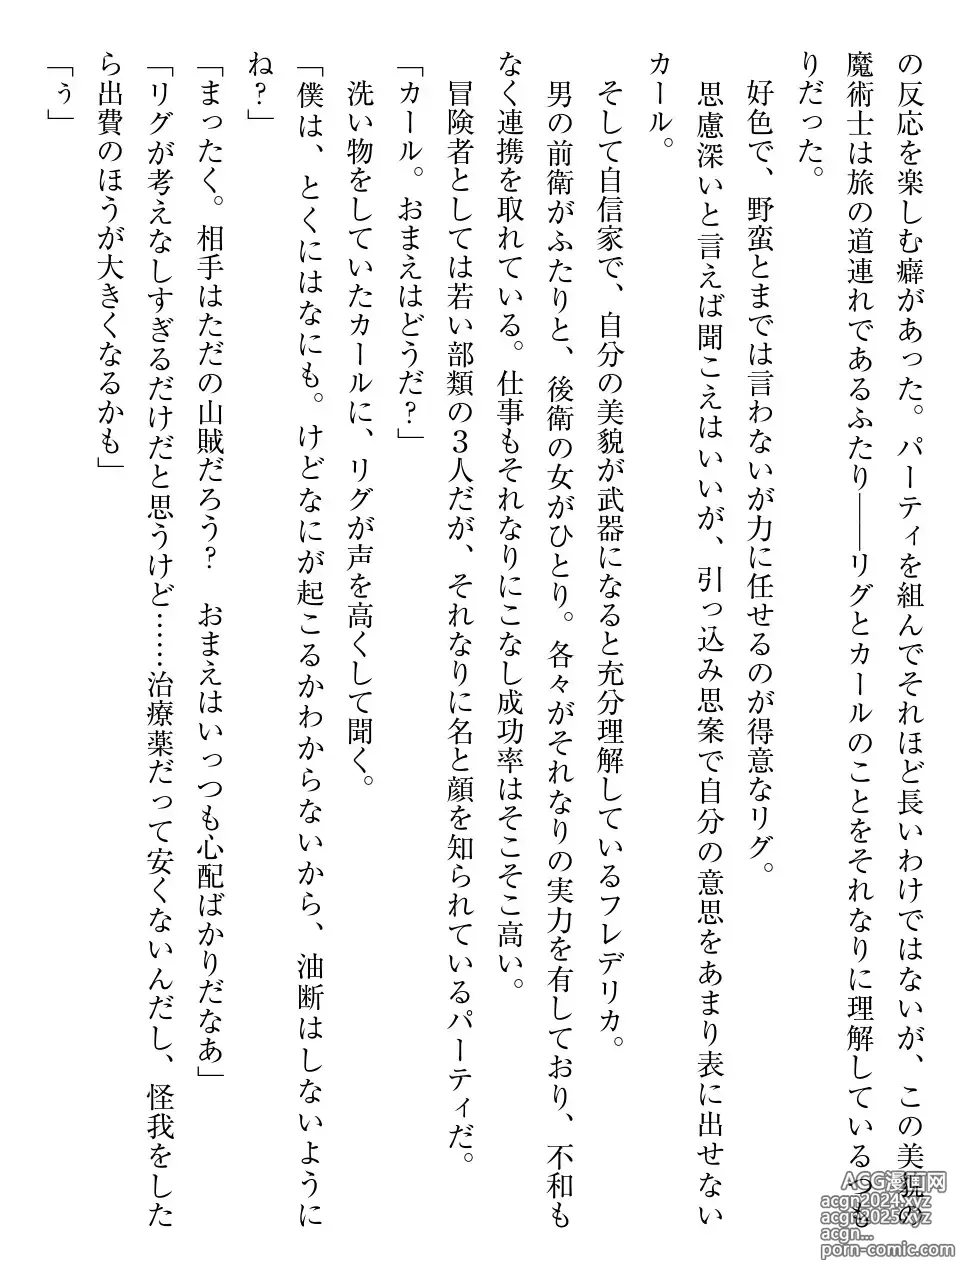 の反応を楽しむ癖があった。パーティを組んでそれほど長いわけではないが、この美貌の
魔術士は旅の道連れであるふたり――リグとカールのことをそれなりに理解しているつも
りだった。
好色で、野蛮とまでは言わないが力に任せるのが得意なリグ。
思慮深いと言えば聞こえはいいが、引っ込み思案で自分の意思をあまり表に出せない
カール。
そして自信家で、自分の美貌が武器になると充分理解しているフレデリカ。
男の前衛がふたりと、後衛の女がひとり。各々がそれなりの実力を有しており、不和も
なく連携を取れている。仕事もそれなりにこなし成功率はそこそこ高い。
冒険者としては若い部類の３人だが、それなりに名と顔を知られているパーティだ。
「カール。おまえはどうだ？」
洗い物をしていたカールに、リグが声を高くして聞く。
「僕は、とくにはなにも。けどなにが起こるかわからないから、油断はしないように
ね？」
「まったく。相手はただの山賊だろう？　おまえはいっつも心配ばかりだなあ」
「リグが考えなしすぎるだけだと思うけど……治療薬だって安くないんだし、怪我をした
ら出費のほうが大きくなるかも」
「ぅ」
ACG漫画网
acgn2024.xyz
acgn2025.xyz
acgn...
porn-comic.com